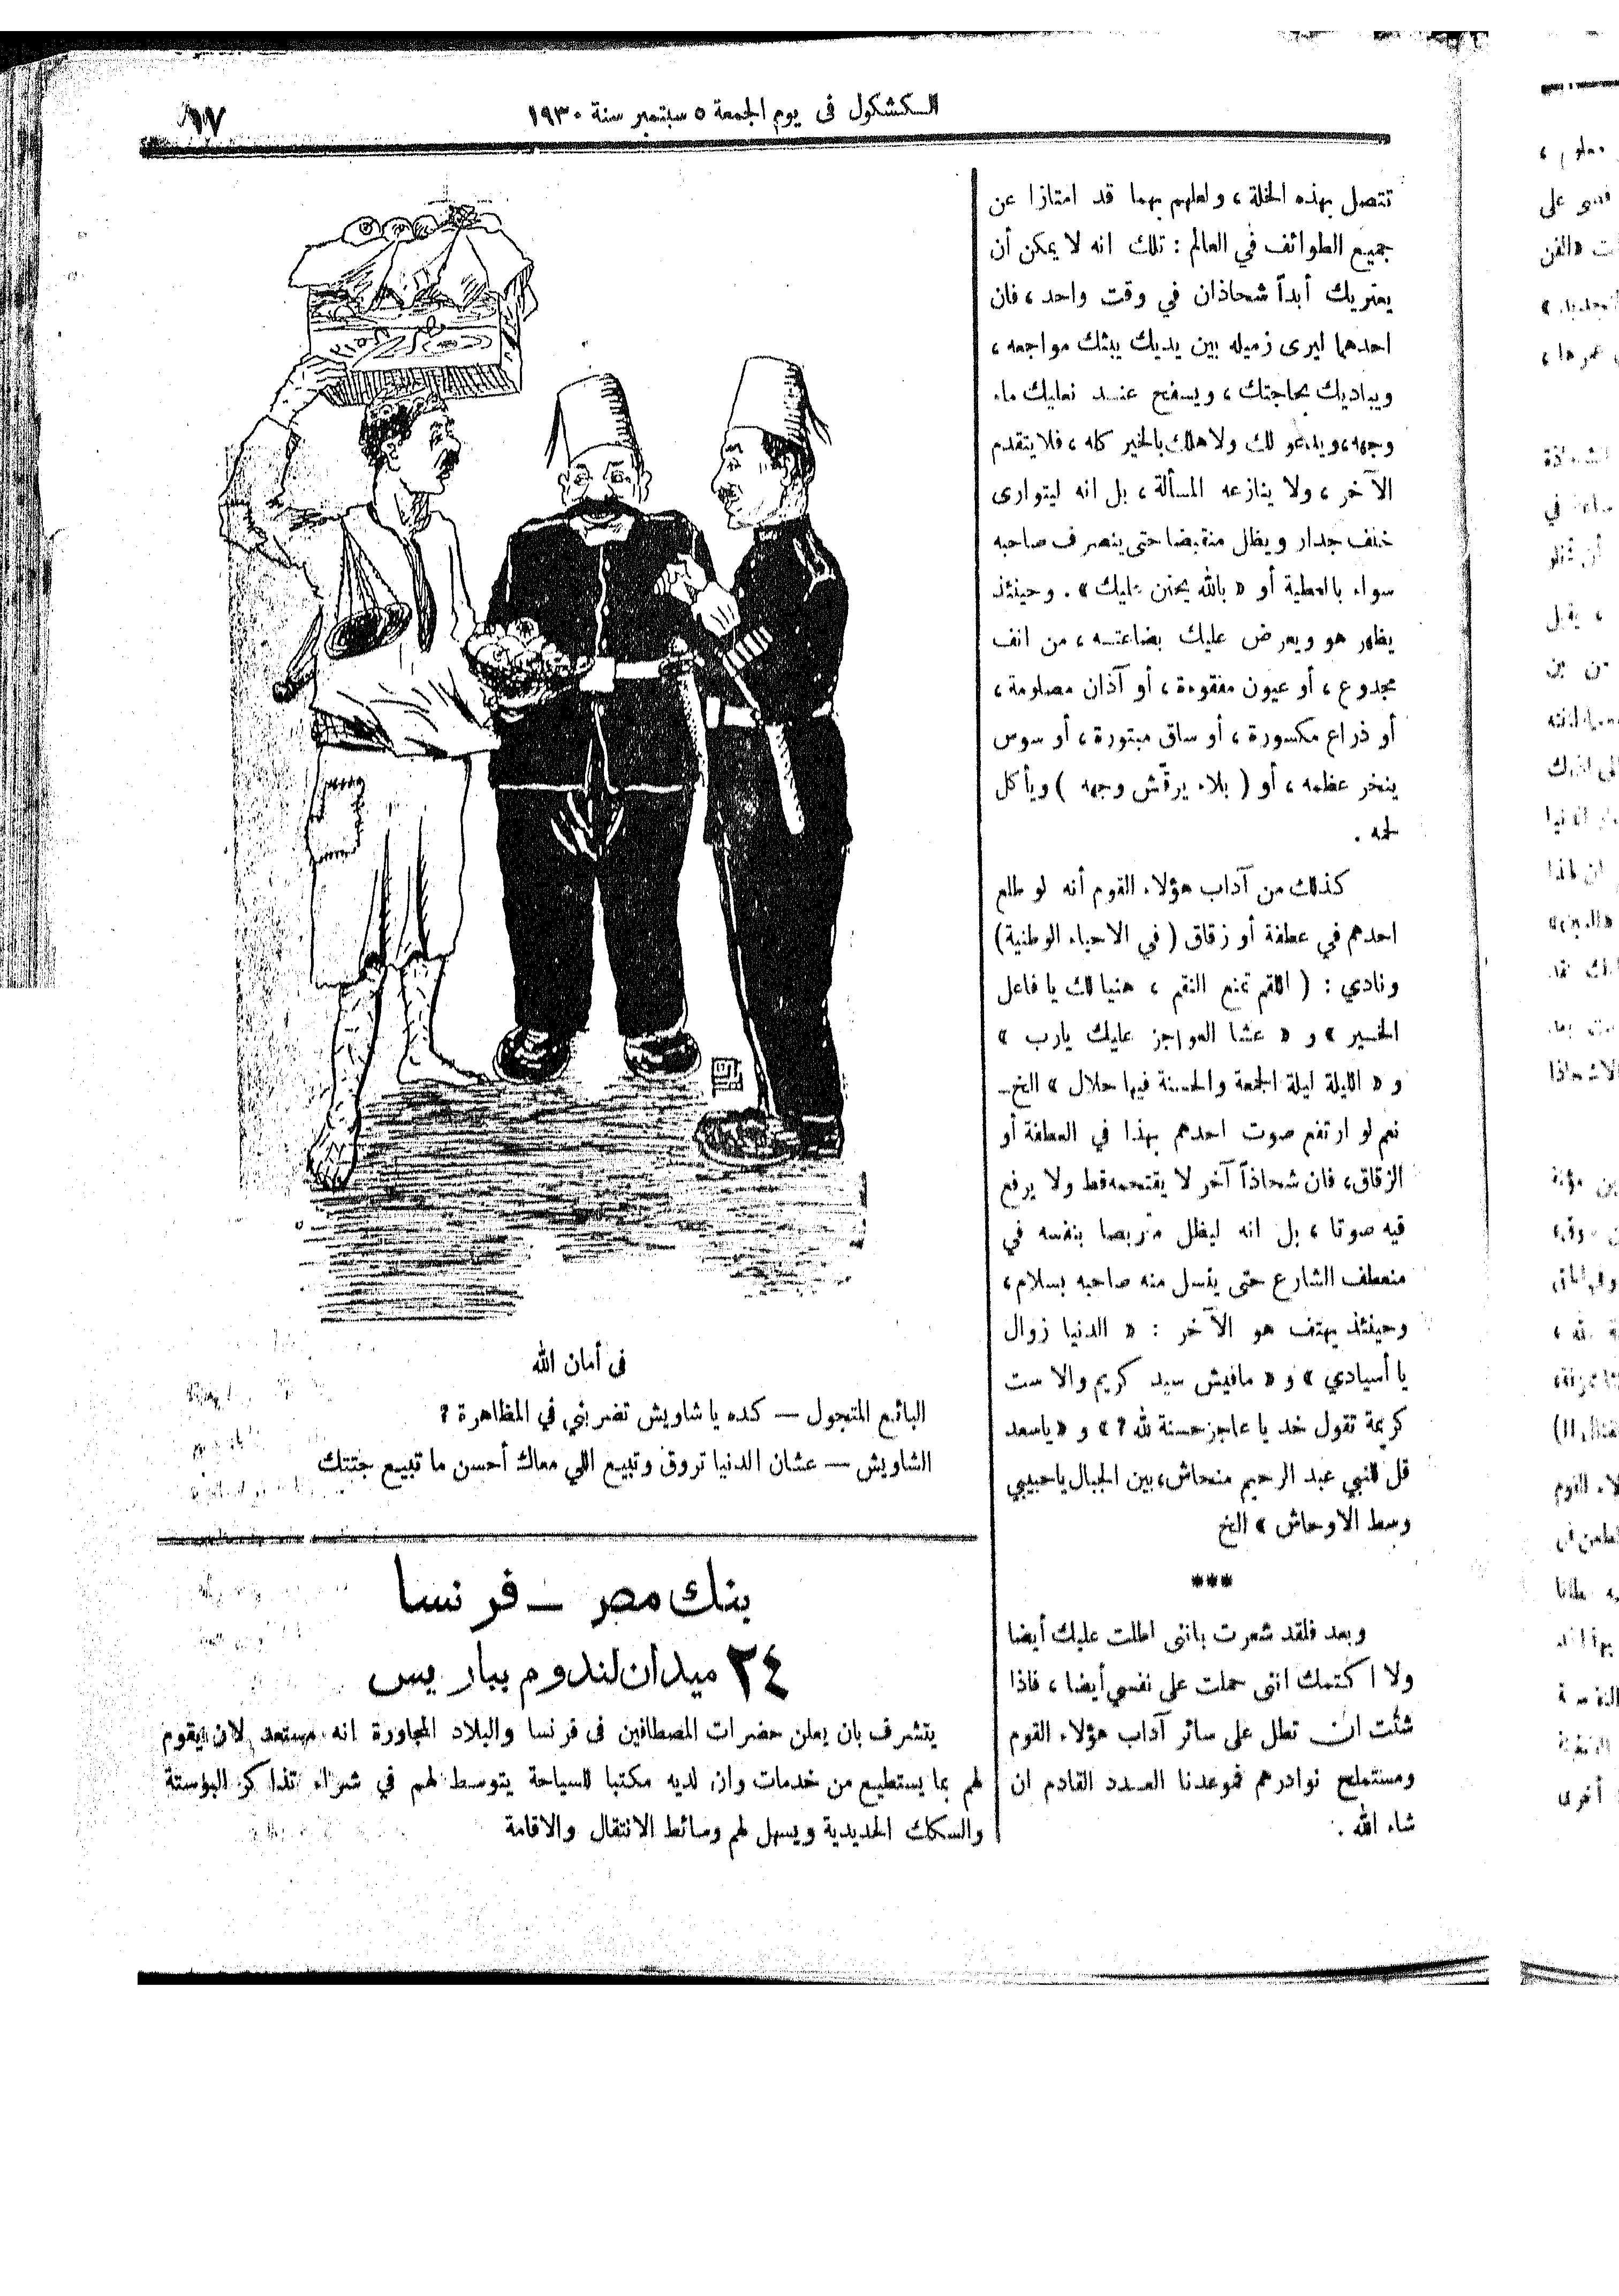 ١٧
الكشكول فى يوم الجمعة ٥ سبتمبر سنة ١٩٣٠
تتصل بهذه الخلة ، ولعلهم بهما قد امتازا عن
جميع الطوائف في العالم : تلك انه لا يمكن أن
يعتريك أبداً شحاذان في وقت واحد ، فان
احدهما ليرى زميله بين يديك يبثك مواجعه ،
ويباديك بحاجتك ، ويسفح عند نعليك ماء
وجهه ، ويدعو لك ولاهلك بالخير كله ، فلا يتقدم
الآخر ، ولا ينازعه المسألة ، بل انه ليتوارى
خلف جدار ويظل منقبضا حتى ينصرف صاحبه
سواء بالعطية أو « بالله يحنن عليك » . وحينئذ
يظهر هو ويعرض عليك بضاعته ، من انف
مجدوع ، أو عيون مفقوءة ، أو آذان مصلومة ،
أو ذراع مكسورة ، أو ساق مبتورة ، أو سوس
ينخر عظمه ، أو ( بلاء يرقّش وجهه ) ويأكل
لحمه .
كذلك من آداب هؤلاء القوم أنه لو طلع
احدهم في عطفة أو زقاق ( في الاحياء الوطنية )
ونادي : ( اللقم تمنع النقم ، هنيا لك يا فاعل
الخير » و « عشا العواجز عليك يارب »
و « الليلة ليلة الجمعة والحسنة فيها حلال » الخ ـ
نعم لو ارتفع صوت احدهم بهذا في العطفة أو
الزقاق ، فان شحاذاً آخر لا يقتحمه قط ولا يرفع
فيه صوتا ، بل انه ليظل متربصا بنفسه في
منعطف الشارع حتى ينسل منه صاحبه بسلام ،
وحينئذ يهتف هو الآخر : « الدنيا زوال
يا أسيادي » و « مافيش سيد كريم والا ست
كريمة تقول خد يا عاجز حسنة لله ؟ » و « ياسعد
قل للنبي عبد الرحيم منحاش ، بين الجبال ياحبيبي
وسط الاوحاش » الخ
***
وبعد فلقد شعرت بانني اطلت عليك أيضا
ولا اكتمك انني حملت على نفسي أيضا ، فاذا
شئت ان تطل على سائر آداب هؤلاء القوم
ومستملح نوادرهم فموعدنا العدد القادم ان
شاء الله .
فى أمان الله
البائع المتجول — كده يا شاويش تضربني في المظاهرة ؟
الشاويش — عشان الدنيا تروق وتبيع اللي معاك أحسن ما تبيع جتتك
بنك مصر ــ فرنسا
٢٤ ميدان لندوم بباريس
يتشرف بان يعلن حضرات المصطافين فى فرنسا والبلاد المجاورة انه مستعد لان يقوم
لهم بما يستطيع من خدمات وان لديه مكتبا للسياحة يتوسط لهم في شراء تذاكر البؤستة
والسكك الحديدية ويسهل لهم وسائط الانتقال والاقامة